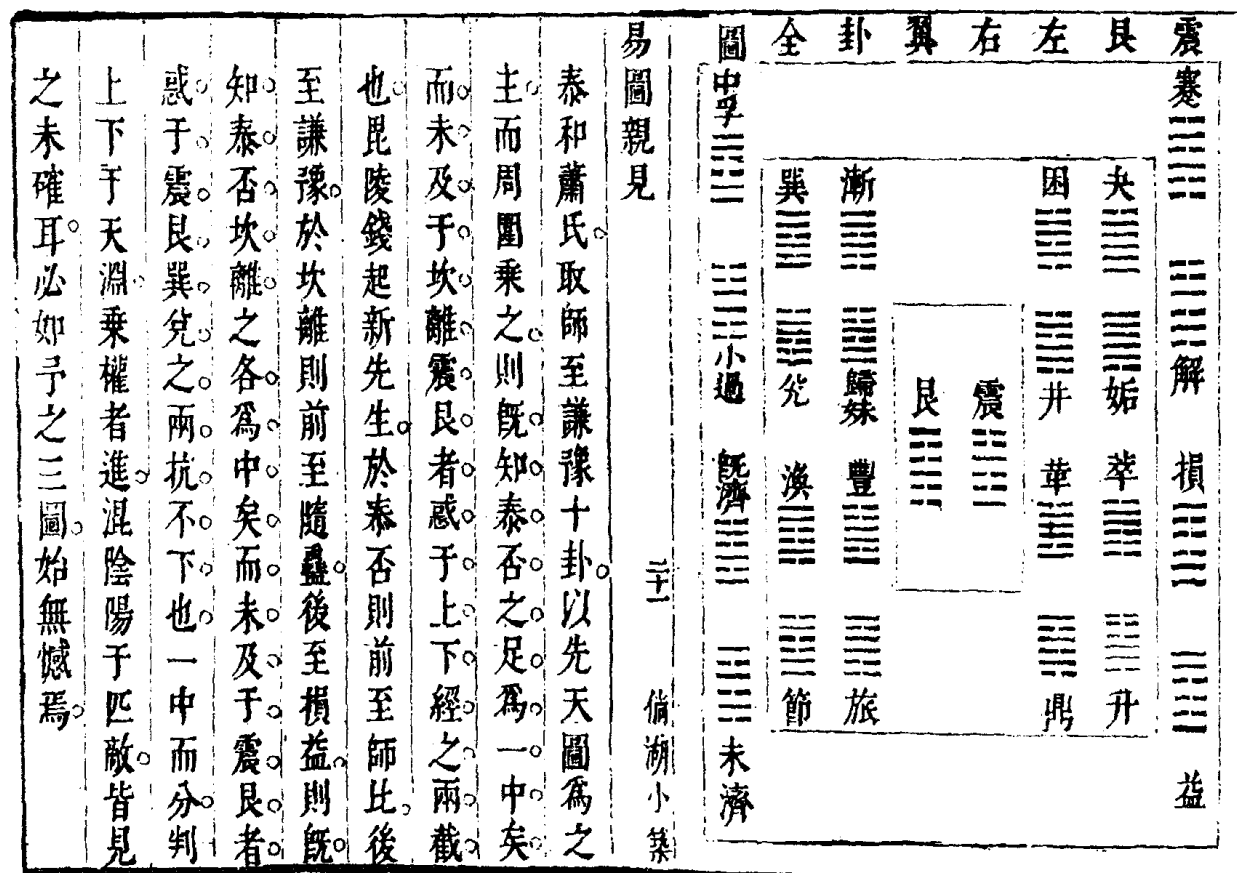 震艮左右翼卦全圖
蹇 解 損 益
夬 姤 萃 升
困 井 革 鼎
震
艮
漸 歸妹 豐 旅
巽 兌 渙 節
中孚 小過 既濟 未濟
易圖親見 二十一 倘湖小築
泰和蕭氏取師至謙豫十卦以先天圖爲之
主而周圍乘之則既知泰否之足爲一中矣
而未及于坎離震艮者惑于上下經之兩截
也毘陵錢起新先生於泰否則前至師比後
至謙豫於坎離則前至隨蠱後至損益則既
知泰否坎離之各爲中矣而未及于震艮者
惑于震艮巽兌之兩抗不下也一中而分判
上下于天淵乘權者進混陰陽于匹敵皆見
之未確耳必如予之三圖始無憾焉